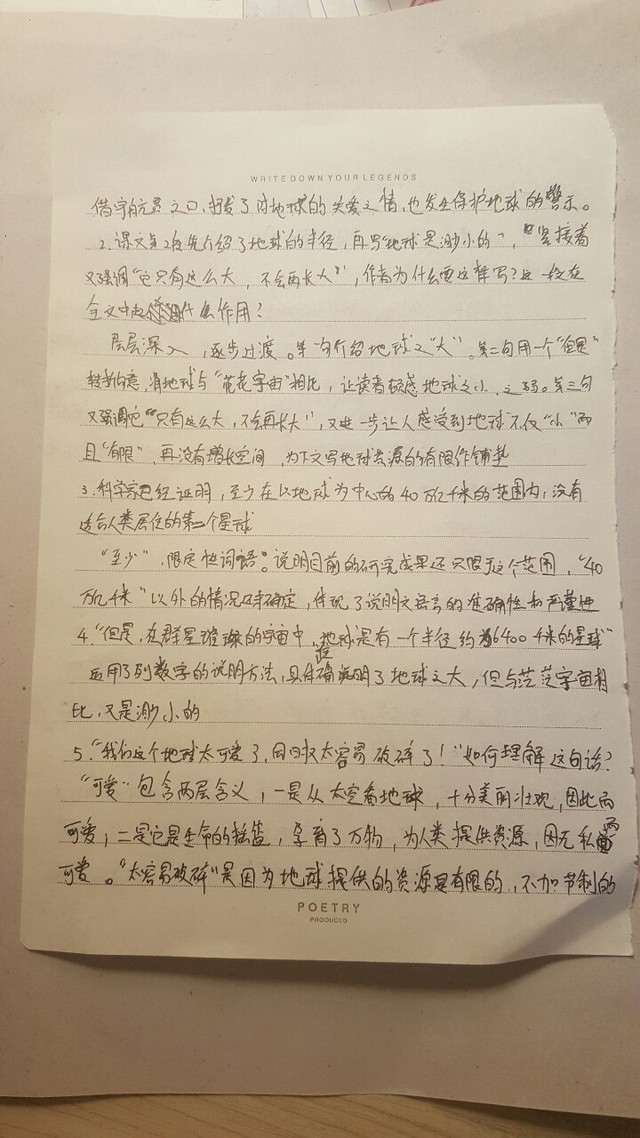 WRITE DOWN YOUR LEGENDS
借宇航员之口,抒发了对地球的关爱之情,也发生保护地球的警示。
2.课文第2段先介绍了地球的半径,再写"地球是渺小的",紧接着
又强调"它只有这么大,不会再长大",作者为什么要这样写?这一段在
全文中起什么作用?
层层深入,逐步过渡。第一句介绍地球之"大"。第二句用一个"但是"
转折句意,将地球与"茫茫宇宙"相比,让读者顿感地球之小、之弱。第三句
又强调它"只有这么大,不会再长大",又进一步让人感受到地球不仅"小"而
且"有限",再没有增长空间,为下文写地球资源的有限作铺垫
3.科学家已经证明,至少在以地球为中心的40万亿千米的范围内,没有
适合人类居住的第二个星球
"至少",限定性词语。说明目前的研究成果还只限于这个范围,"40
万亿千米"以外的情况口未确定,体现了说明文语言的准确性和严谨性
4."但是,在群星璀璨的宇宙中,地球是有一个半径约为6400千米的星球"
运用了列数字的说明方法,具体准确说明了地球之大,但与茫茫宇宙相
比,又是渺小的
5."我们这个地球太可爱了,同时又太容易破碎了!"如何理解这句话?
"可爱"包含两层含义,一是从太空看地球,十分美丽壮观,因此而
可爱;二是它是生命的摇篮,孕育了万物,为人类提供资源,因无私而
可爱。"太容易破碎"是因为地球提供的资源是有限的,不加节制的
POETRY
PRODUCED